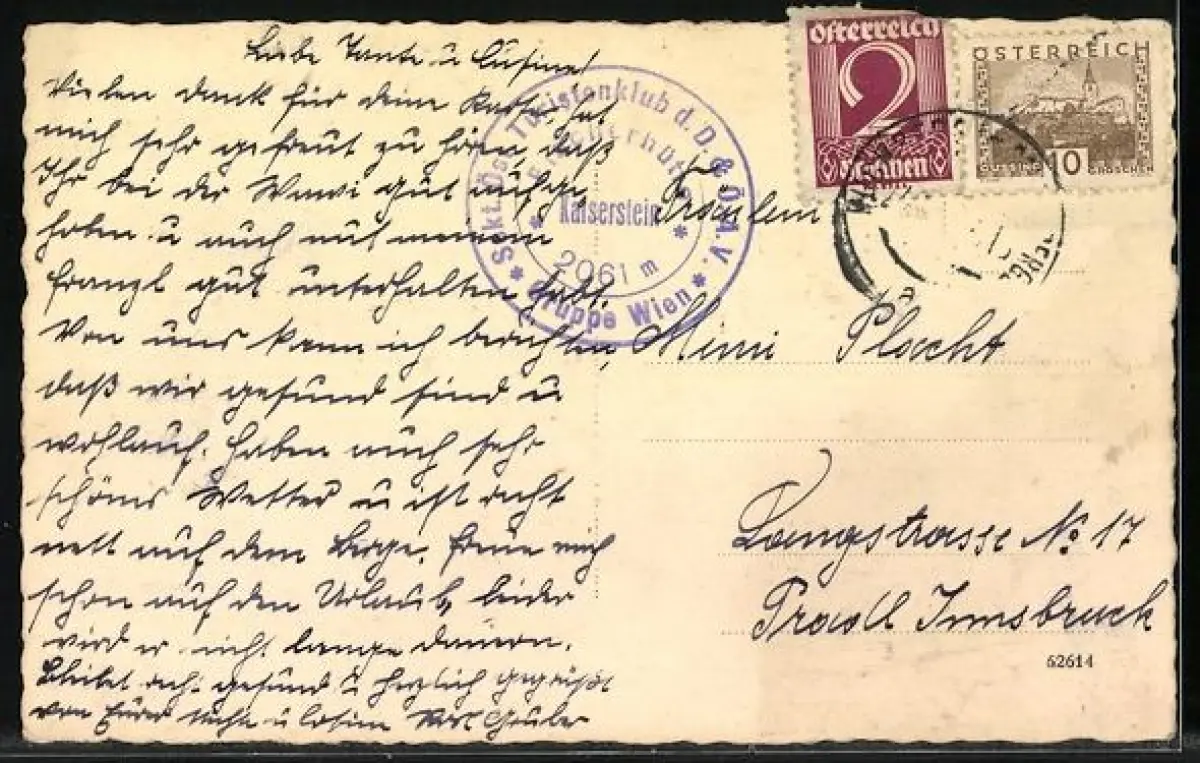 Liebe Tante u Cusine!
Vielen dank für deine Karte, hat
mich sehr gefreut zu hören, daß
Ihr bei der Wawi gut aufge
hoben u auch mit meinem
Franzl gut unterhalten habt.
Von uns kann ich berichten,
daß wir gesund sind u
wohlauf. haben auch sehr
schönes Wetter u ist recht
nett auf dem Berge. freue mich
schon auf den Urlaub, leider
wird er nicht lange dauern.
Bleibet recht gesund u herzlich gegrüßt
von Eurer Nichte u Cosine
Sekt. Öst. Touristenklub d. D. & Ö. A. V.
* Gruppe Wien *
Kaiserstein
2061 m
Österreich
2
Groschen
ÖSTERREICH
GÜSSING 10 GROSCHEN
Fräulein
Mimi Placht
Langstrasse No 17
Pradl Innsbruck
62614